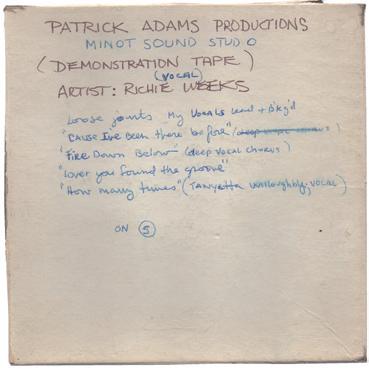 PATRICK ADAMS PRODUCTIONS
MINOT SOUND STUDIO
(DEMONSTRATION TAPE)
(VOCAL)
ARTIST: RICHIE WEEKS
Loose joints My Vocals Lead + B'kg'd
"Cause I've been there before" (deep vocal chorus)
"Fire Down Below" (deep vocal chorus)
"Lover you found the groove"
"How many times" (TANYETTA Willoughby, VOCAL)
ON 5